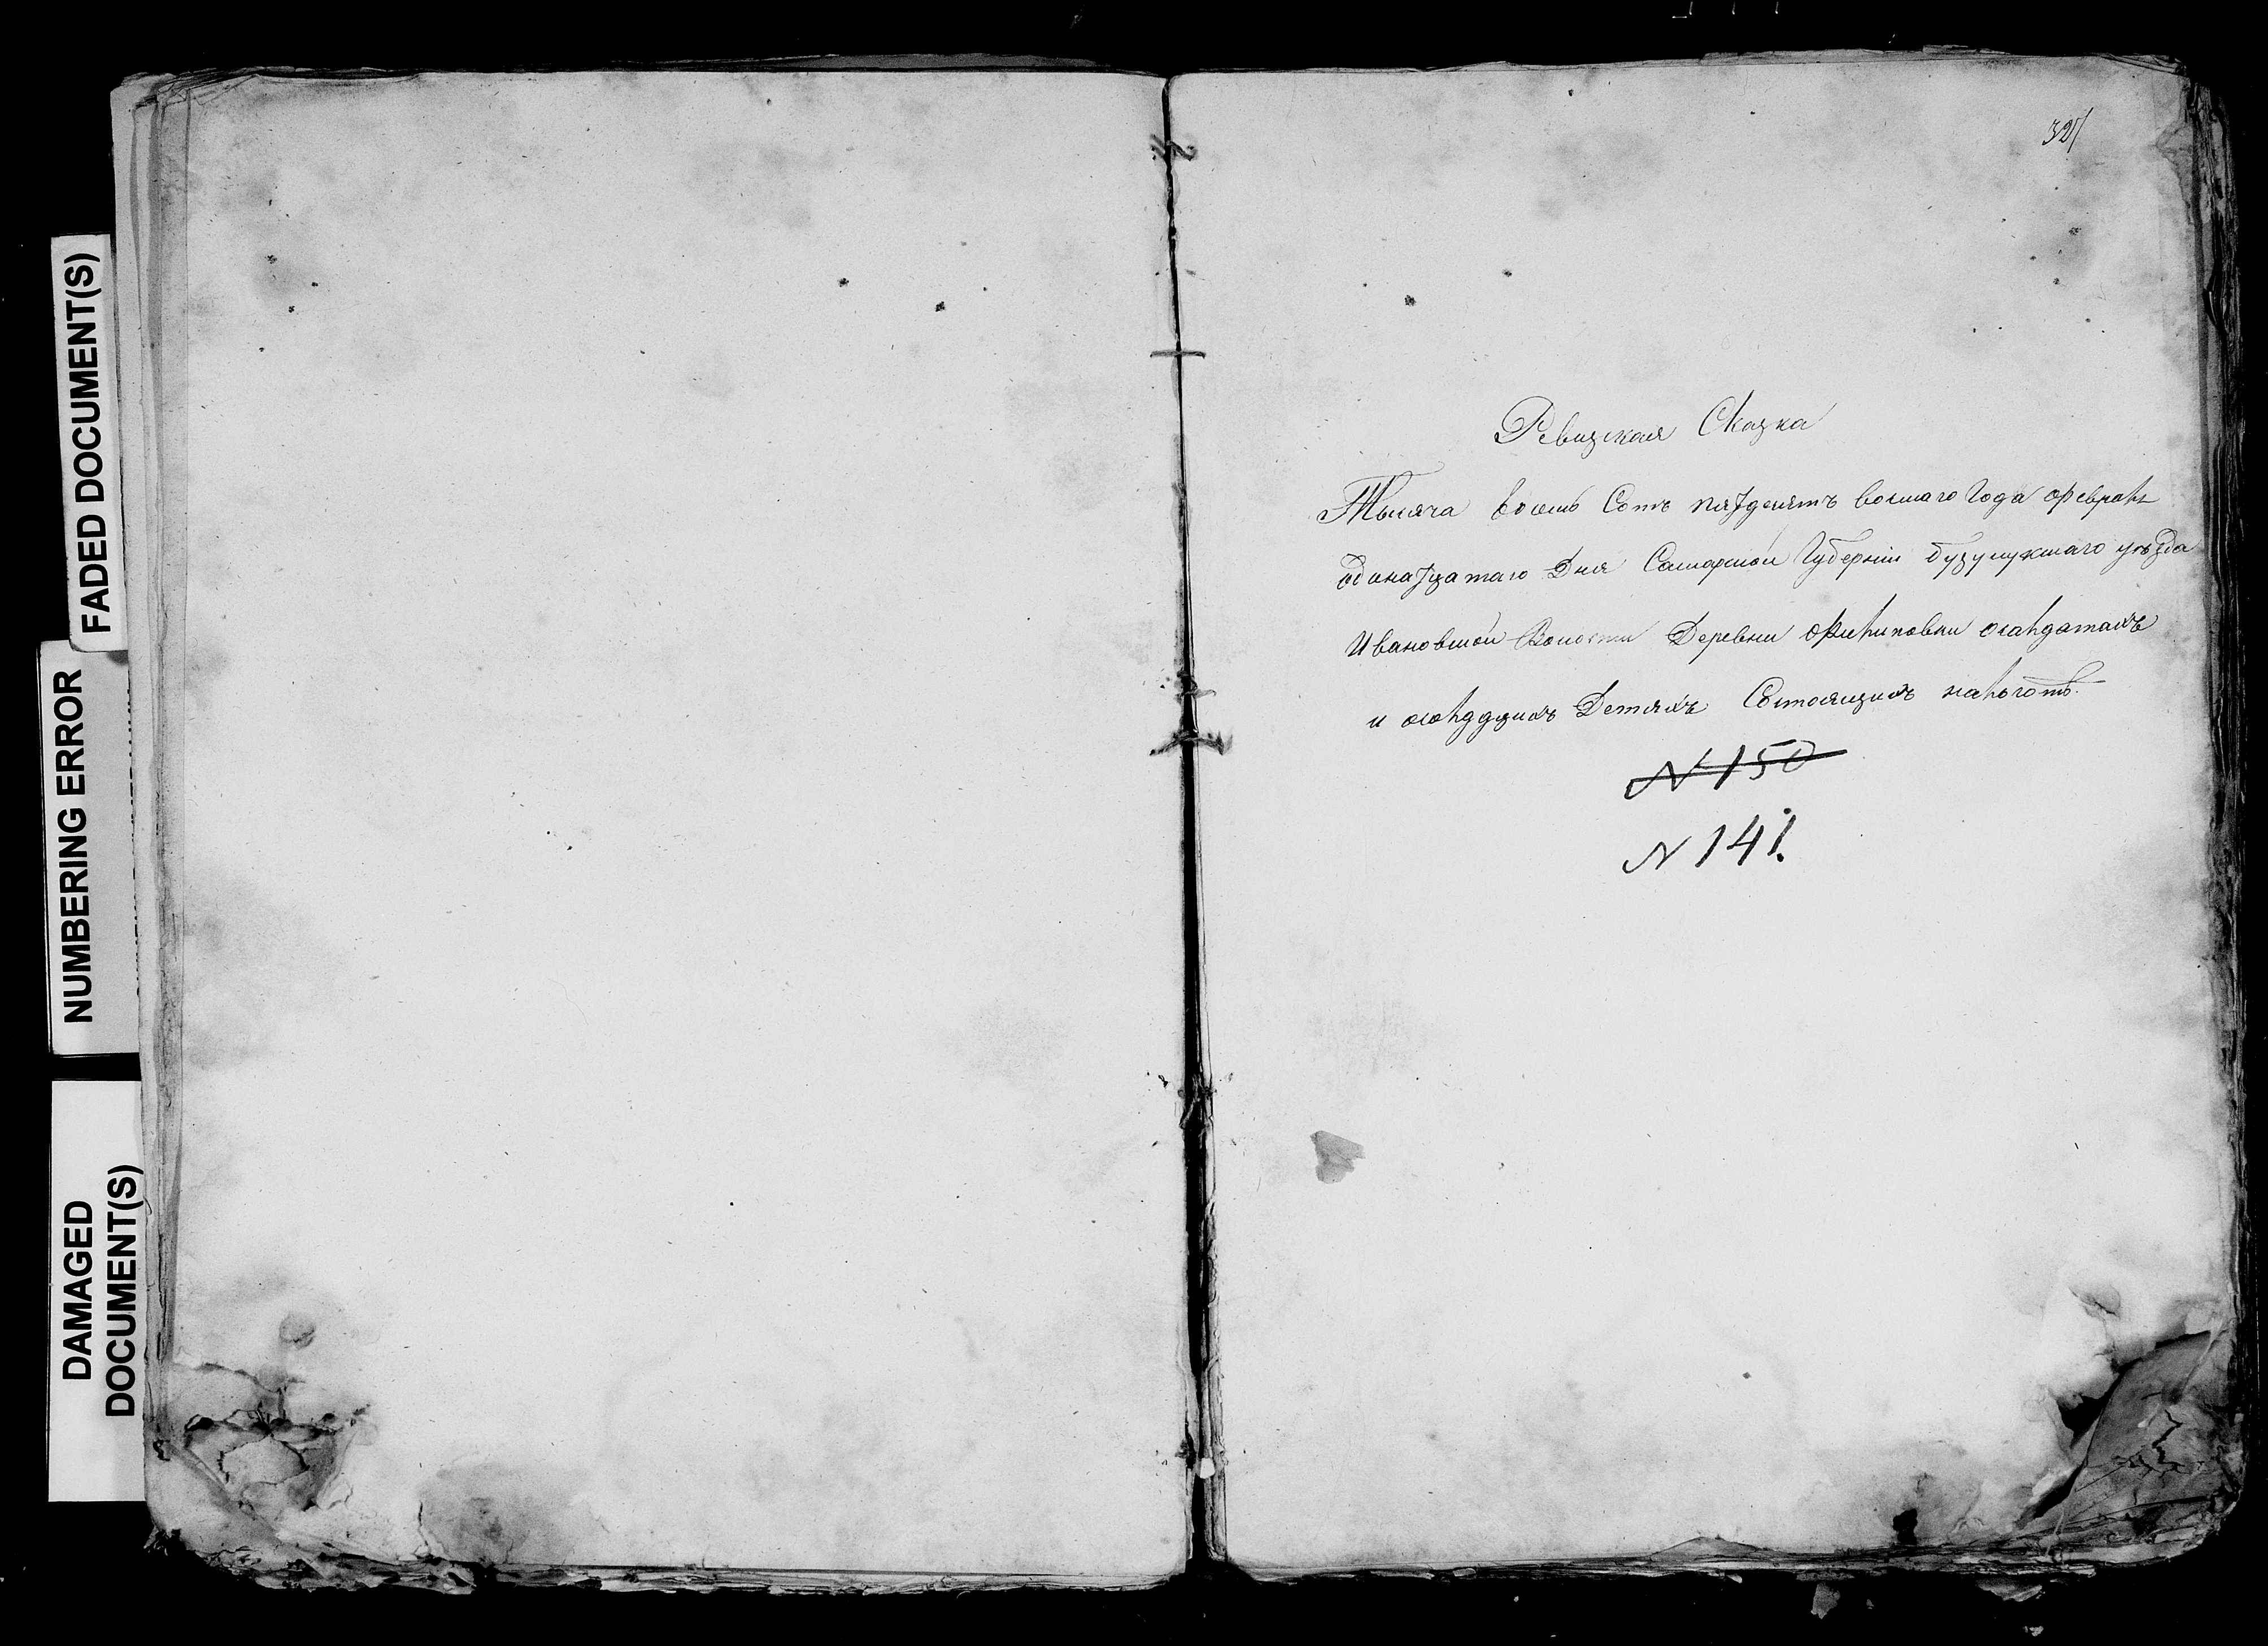 FADED DOCUMENT(S)
NUMBERING ERROR
DAMAGED
DOCUMENT(S)
Ревизская Сказка
Тысяча восемь Сотъ пятдесятъ восмаго Года февраля
одинатцатаго Дня Самарской Губернии бузулукскаго уѣзда
Ивановской Волости Деревни Филиповки осолдатахъ
и солдадскихъ Детяхъ Состоящихъ нальготѣ.
N 150
N 141.